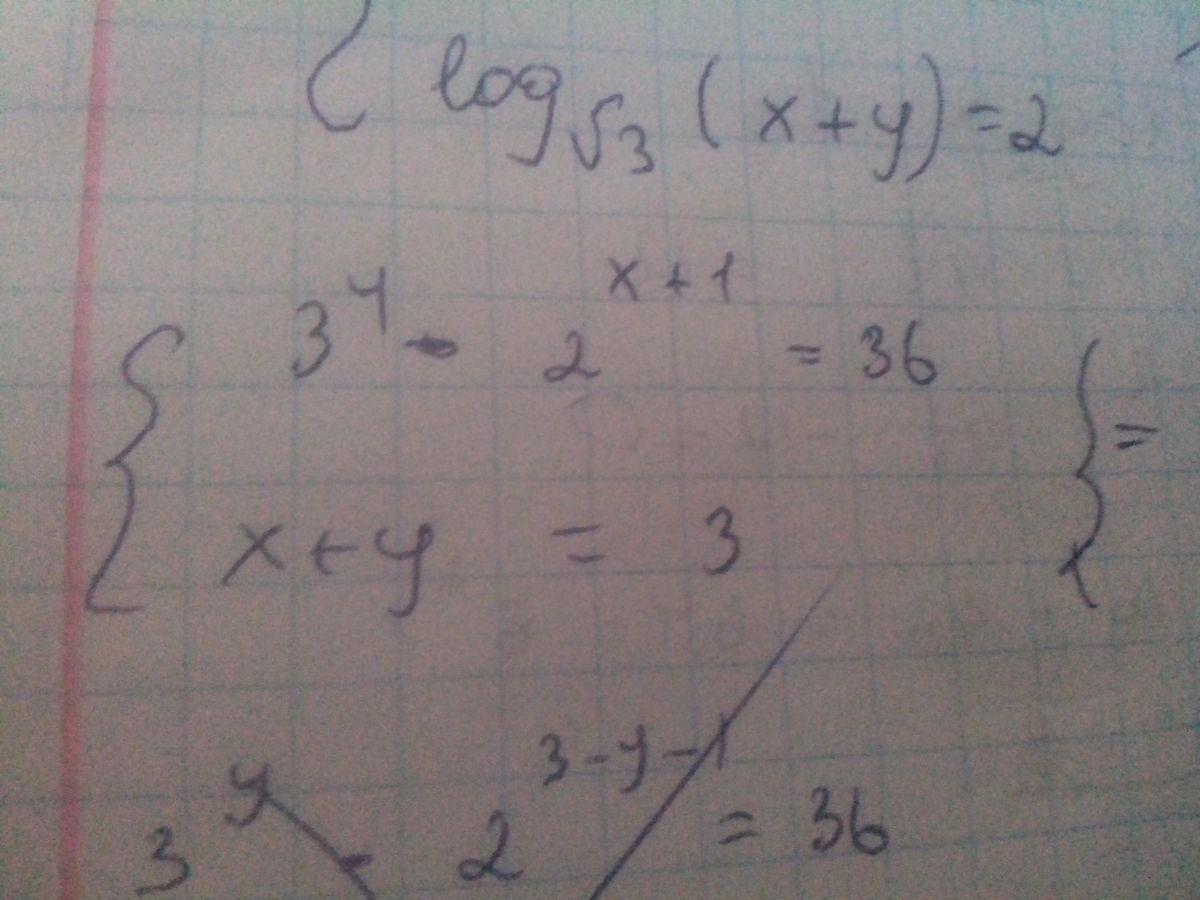 { log_√3 (x+y)=2
{ 3^y · 2^(x+1) = 36 } =
x+y = 3
3^y · 2^(3-y-1) = 36